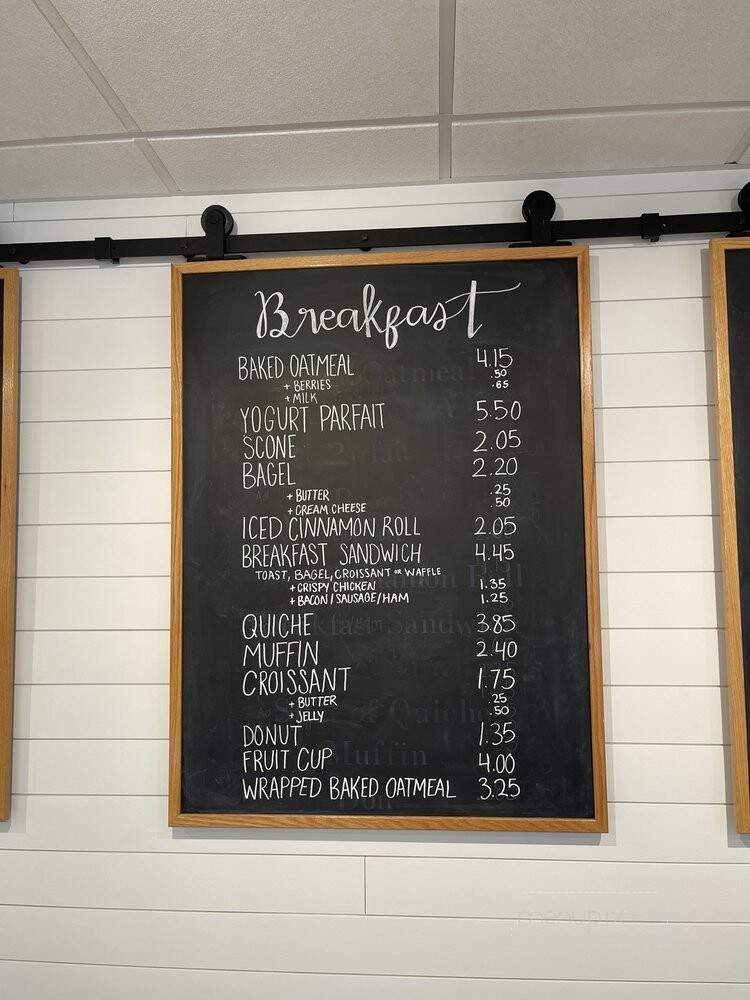 Breakfast
BAKED OATMEAL 4.15
+ BERRIES .50
+ MILK .65
YOGURT PARFAIT 5.50
SCONE 2.05
BAGEL 2.20
+ BUTTER .25
+ CREAM CHEESE .50
ICED CINNAMON ROLL 2.05
BREAKFAST SANDWICH 4.45
TOAST, BAGEL, CROISSANT OR WAFFLE
+ CRISPY CHICKEN 1.35
+ BACON/SAUSAGE/HAM 1.25
QUICHE 3.85
MUFFIN 2.40
CROISSANT 1.75
+ BUTTER .25
+ JELLY .50
DONUT 1.35
FRUIT CUP 4.00
WRAPPED BAKED OATMEAL 3.25